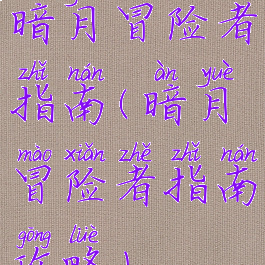 暗月冒险者
zhǐ nán àn yuè
指南(暗月
mào xiǎn zhě zhǐ nán
冒险者指南
gōng lüè
攻略)